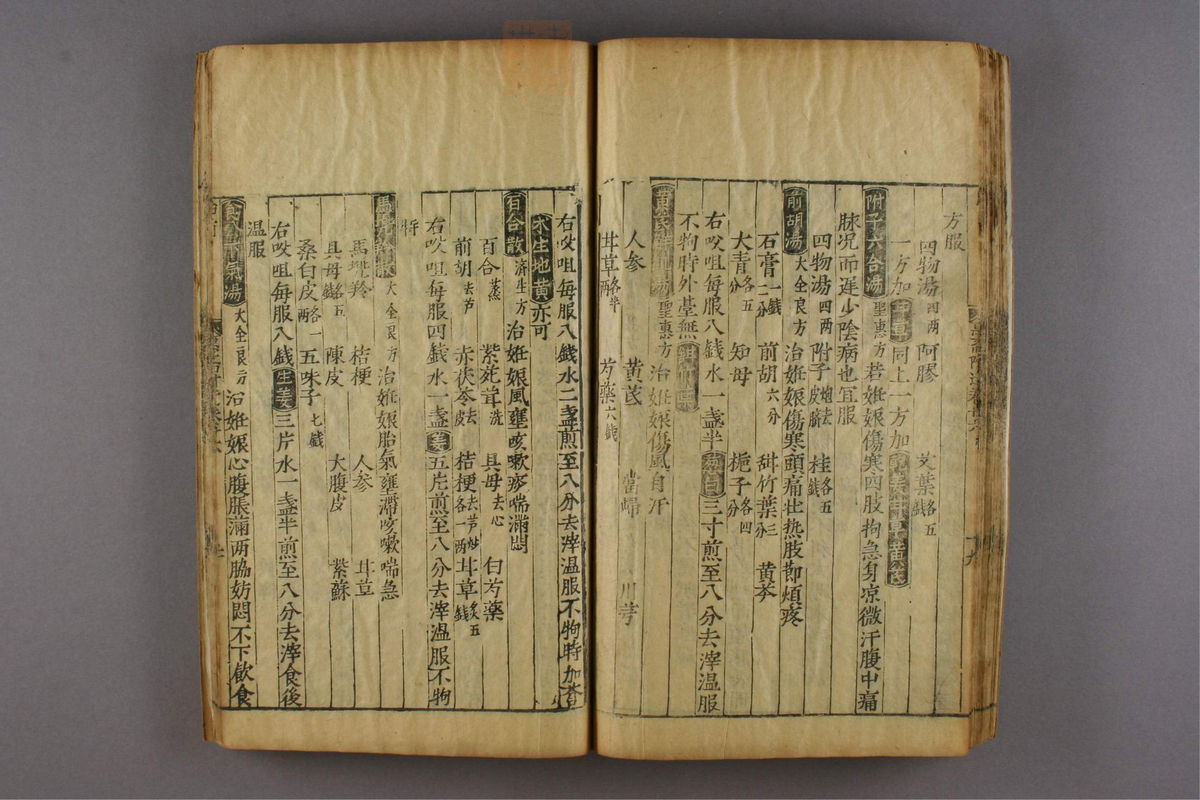 方服
四物湯四两 阿膠 艾葉各五錢
一方加 同上一方加
附子六合湯聖惠方若姙娠傷寒四肢拘急身凉微汗腹中痛
脉况而遅少陰病也宜服
四物湯四两 附子炮去皮臍 桂各五錢
前胡湯大全良方治姙娠傷寒頭痛壮热肢節煩疼
石膏一錢二分 前胡六分 甜竹葉三分 黄芩
大青各五分 知母 梔子各四分
右㕮咀每服八錢水一盞半葱白三寸煎至八分去滓温服
不拘時外臺無
黄芪 聖惠方治姙娠傷風自汗
人参 黄芪 當歸 川芎
甘草各半两 芍藥六錢
右㕮咀每服八錢水二盞煎至八分去滓温服不拘時加
水生地黄亦可
百合散濟生方治姙娠風壅咳嗽痰喘滿悶
百合蒸 紫菀茸洗 貝母去心 白芍藥
前胡去芦 赤茯苓去皮 桔梗去芦炒各一两 甘草炙五錢
右㕮咀每服四錢水一盞姜五片煎至八分去滓温服不拘
時
馬兠鈴散大全良方治姙娠胎氣壅滯咳嗽喘急
馬兠羚 桔梗 人参 甘草
貝母各五錢 陳皮 大腹皮 紫蘇
桑白皮各一两 五味子七錢
右㕮咀每服八錢生姜三片水一盞半煎至八分去滓食後
温服
氣湯大全良方治姙娠心腹脹滿两脇妨悶不下飲食